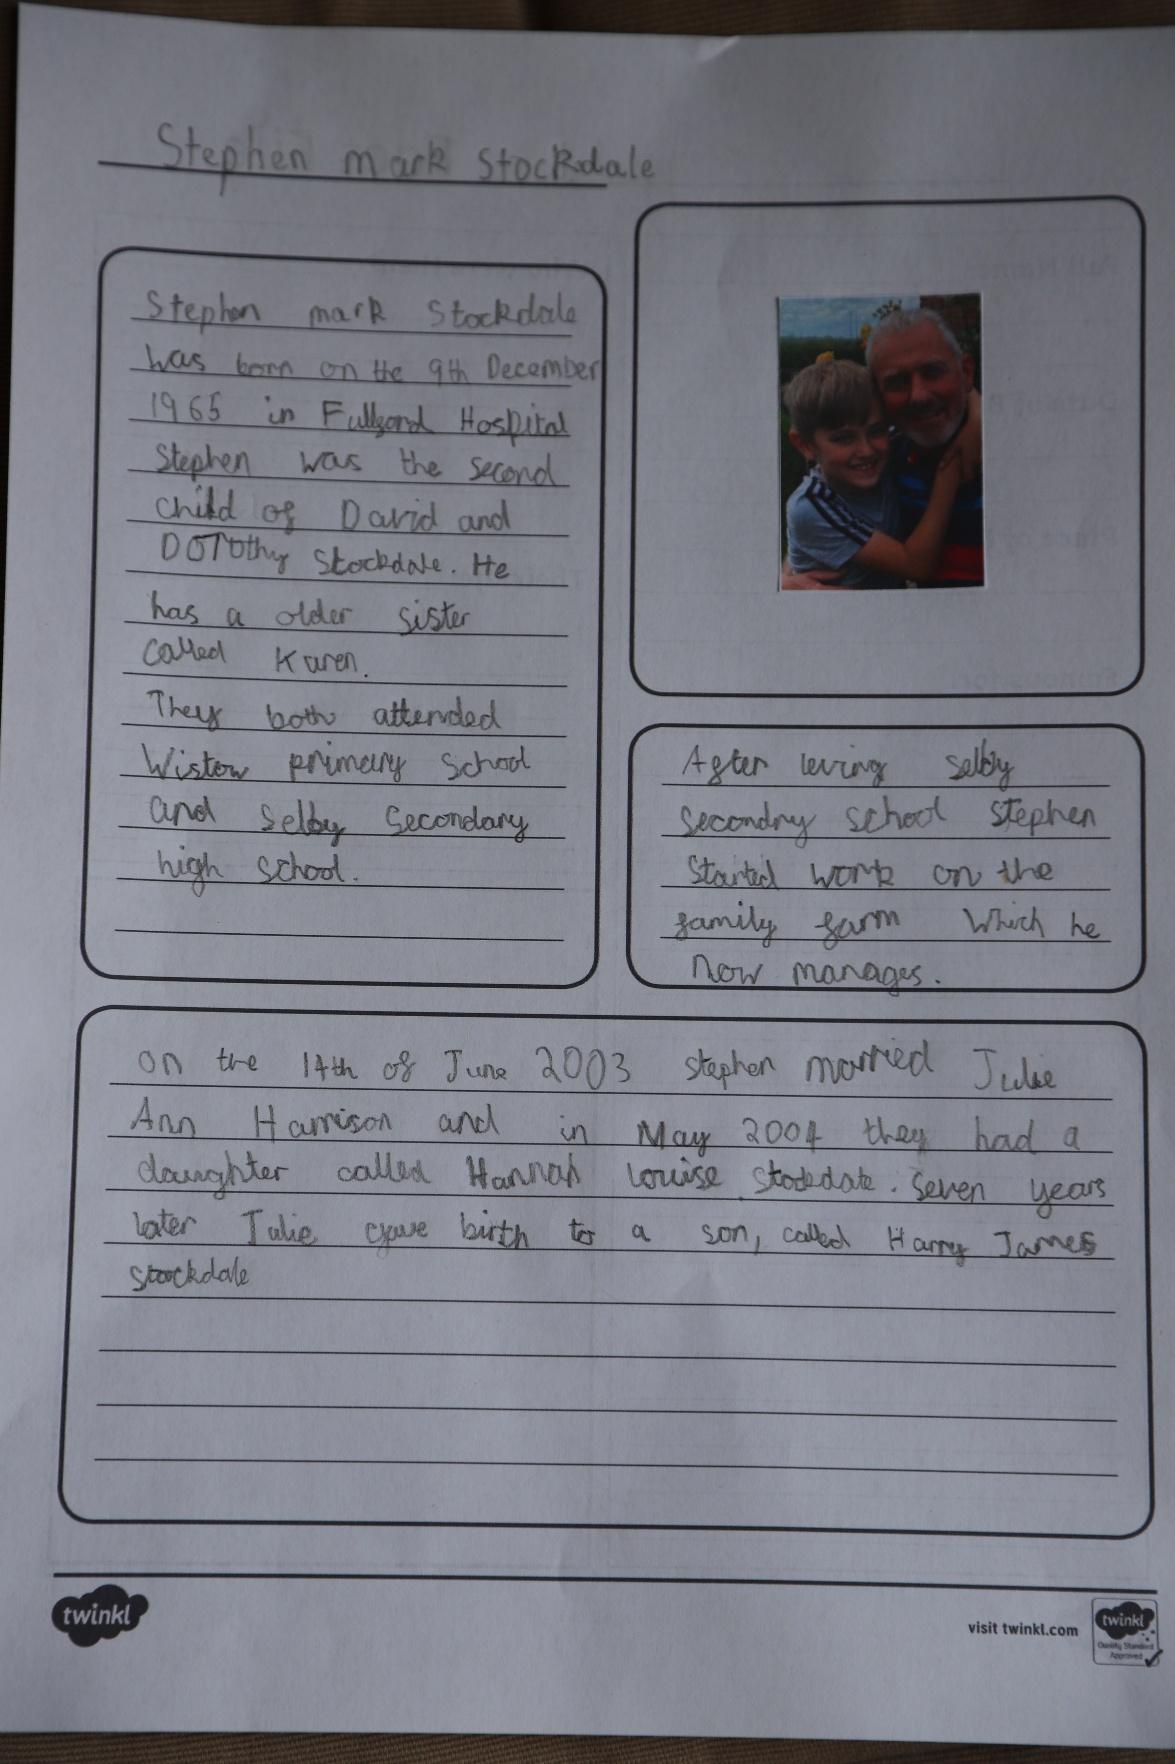 Stephen mark Stockdale
Stephen mark Stockdale
was born on the 9th December
1965 in Fulford Hospital
Stephen was the second
child of David and
DOROthy Stockdale. He
has a older sister
called Karen.
They both attended
Wistow primary School
and Selby Secondary
high school.
After leving selby
secondry school Stephen
Started work on the
family farm which he
now manages.
on the 14th of June 2003 stephen married Julie
Ann Harrison and in May 2004 they had a
daughter called Hannah Louise Stockdale. Seven years
later Julie gave birth to a son, called Harry James
Stockdale
twinkl
visit twinkl.com
twinkl
Quality Standard
Approved